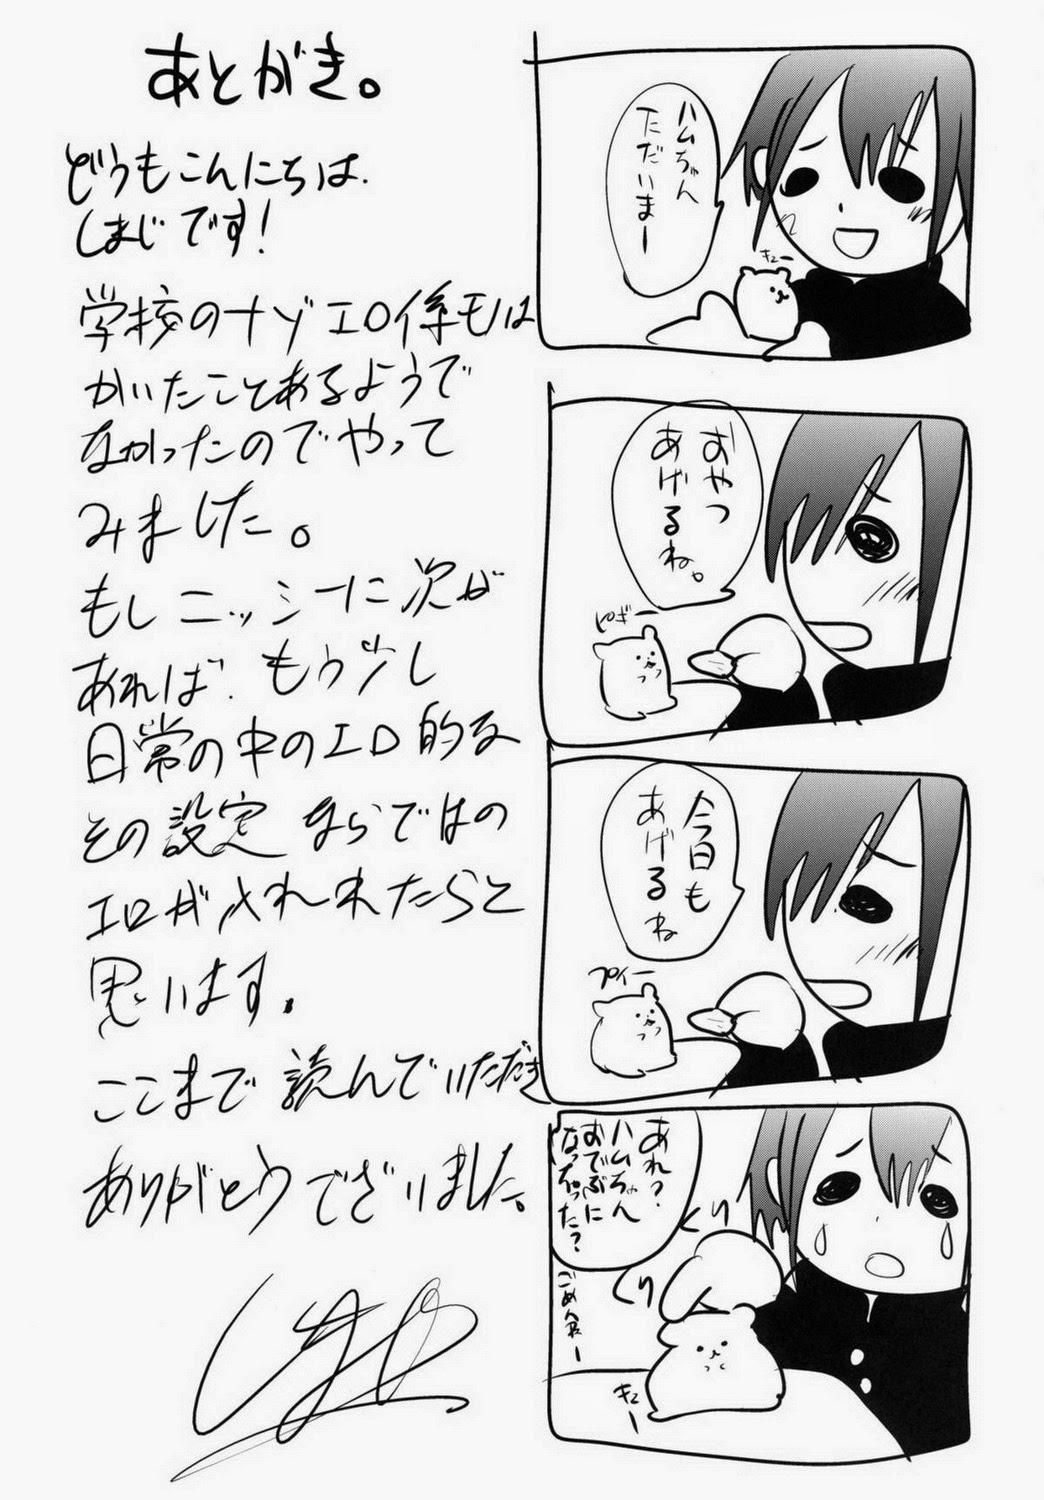 あとがき。
どうもこんにちは.
しまじです!
学校のナゾエロ係モは
かいたことあるようで
なかったのでやって
みました。
もしニッシーに次が
あれば. もう少し
日常の中のエロ的な
その設定ならではの
エロが入れれたらと
思います.
ここまで読んでいただき
ありがとうございました.
ハムちゃん
ただいまー
キュー
おやつ
あげるね。
ピギー
今日も
あげるね
プイー
あれ?
ハムちゃん
おでぶに
なっちゃった?
くり
くり
ごめんねー
キュー